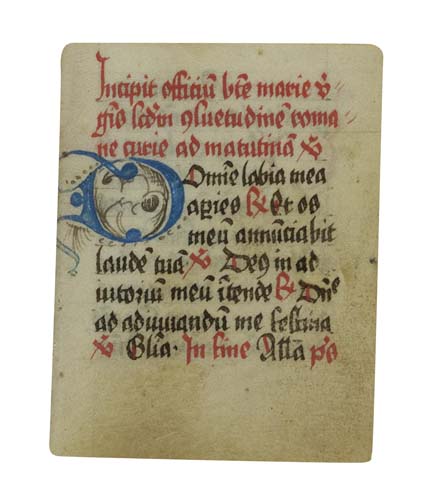 Incipit officiū bt̄e marie v̄gīs sc̄dm ꝯsuetudinē romane curie ad matutinā ℣
Domīe labia mea
aꝑies ℟ Et os
meū annūciabit
laudē tuā ℣ Deꝰ in ad
iutoriū meū ītende ℟ Dn̄e
ad adiuuandū me festina
℣ Glīa · In fine Allā pō